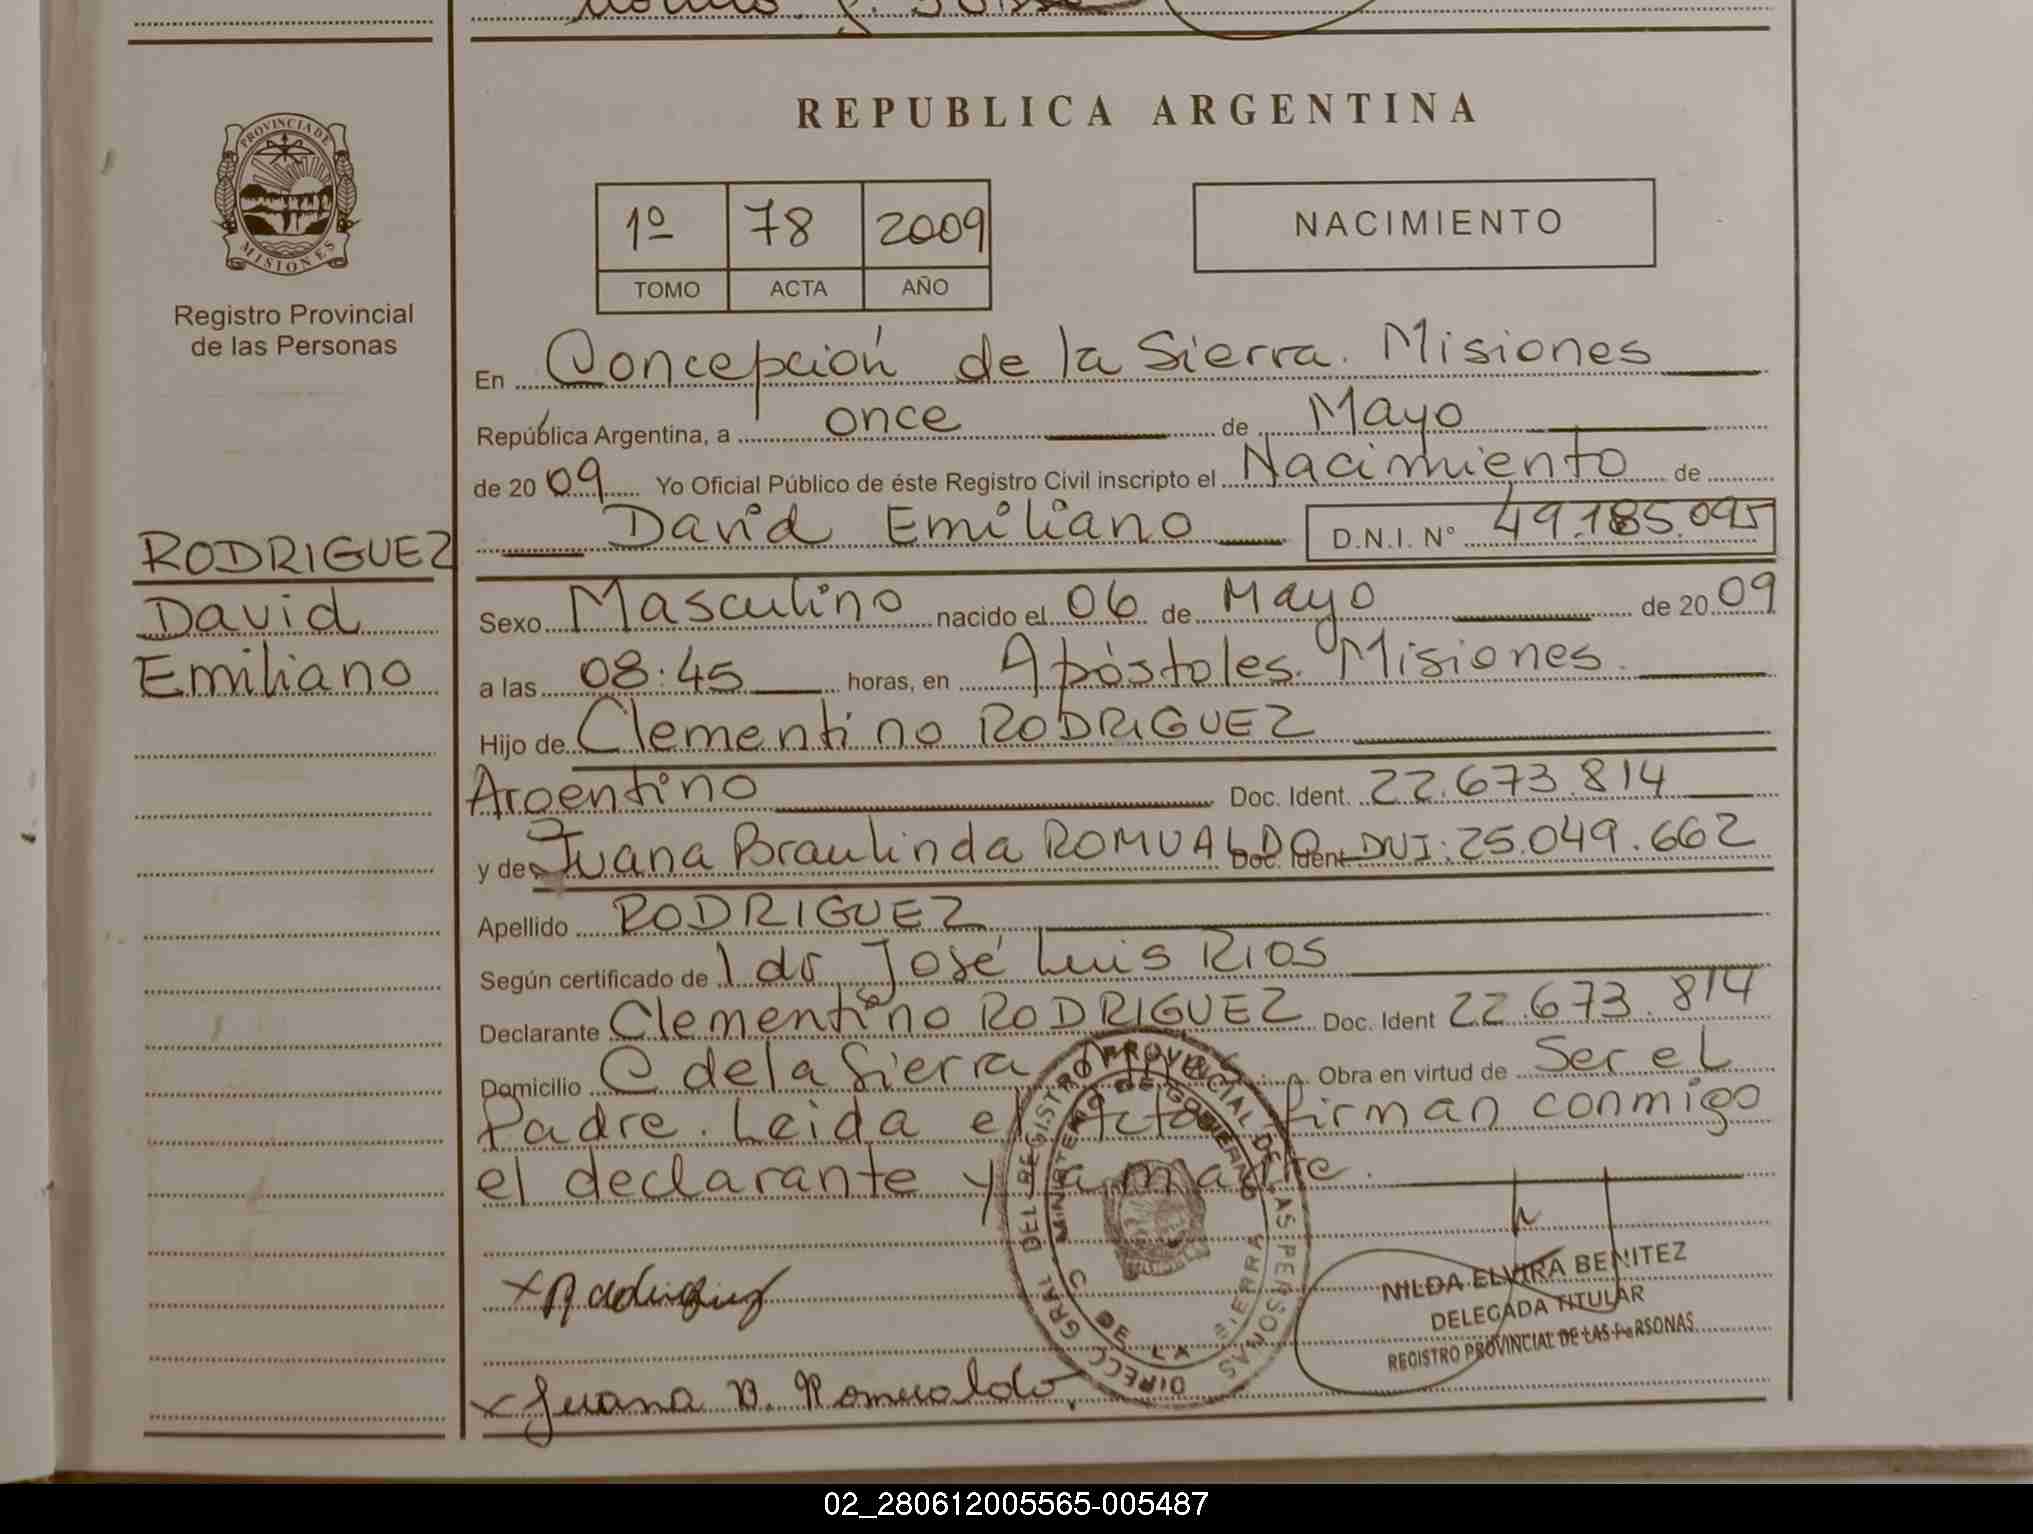 REPUBLICA ARGENTINA
PROVINCIA DE
MISIONES
Registro Provincial
de las Personas
1º 78 2009
TOMO ACTA AÑO
NACIMIENTO
En Concepción de la Sierra. Misiones
República Argentina, a once de Mayo
de 2009 Yo Oficial Público de éste Registro Civil inscripto el Nacimiento de
David Emiliano D.N.I. Nº 49.185.095
RODRIGUEZ
David
Emiliano
Sexo Masculino nacido el 06 de Mayo de 2009
a las 08:45 horas, en Apóstoles. Misiones.
Hijo de Clementino RODRIGUEZ
Argentino Doc. Ident. 22.673.814
y de Juana Braulinda ROMUALDO Doc. Ident. DNI: 25.049.662
Apellido RODRIGUEZ
Según certificado de 1 dr José Luis RIOS
Declarante Clementino RODRIGUEZ Doc. Ident 22.673.814
Domicilio C de la Sierra Obra en virtud de Ser el
Padre. Leida el Acta firman conmigo
el declarante y la madre.
DIRECC GRAL DEL REGISTRO PROVINCIAL DE LAS PERSONAS
MINISTERIO DE GOBIERNO
C DE LA SIERRA
x Rodriguez
NILDA ELVIRA BENITEZ
DELEGADA TITULAR
REGISTRO PROVINCIAL DE LAS PERSONAS
x Juana B. Romualdo
02_280612005565-005487